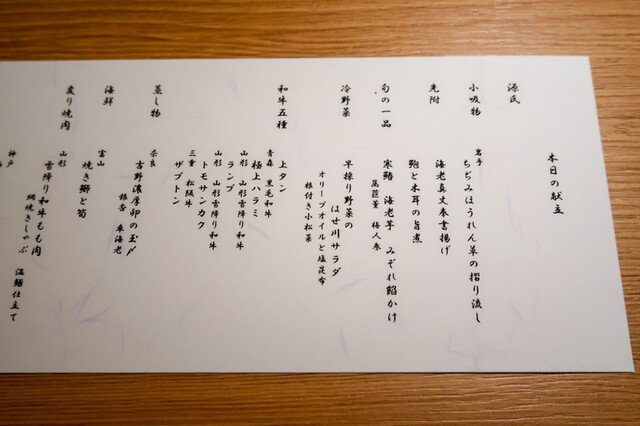 本日の献立
源氏
小吸物
岩手 ちぢみほうれん草の摺り流し
先附
海老真丈奉書揚げ
鮑と木耳の旨煮
旬の一品
寒鰆 海老芋 みぞれ餡かけ
萵苣薹 梅人参
冷野菜
早採り野菜の
はせ川サラダ
オリーブオイルと塩昆布
根付き小松菜
和牛五種
上タン
青森 黒毛和牛
極上ハラミ
山形 山形雪降り和牛
ランプ
山形 山形雪降り和牛
トモサンカク
三重 松阪牛
ザブトン
蒸し物
奈良
吉野濃厚卵の玉〆
銀杏 車海老
海鮮
富山
焼き鰤と筍
炙り焼肉
山形
雪降り和牛もも肉
網焼きしゃぶ 温麺仕立て
神戸